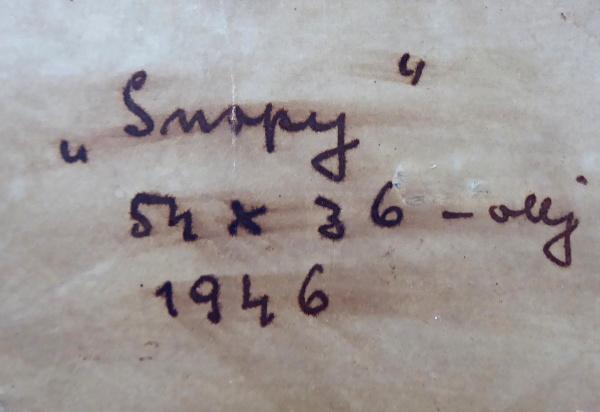 „Snopy"
54 x 36 – olej
1946